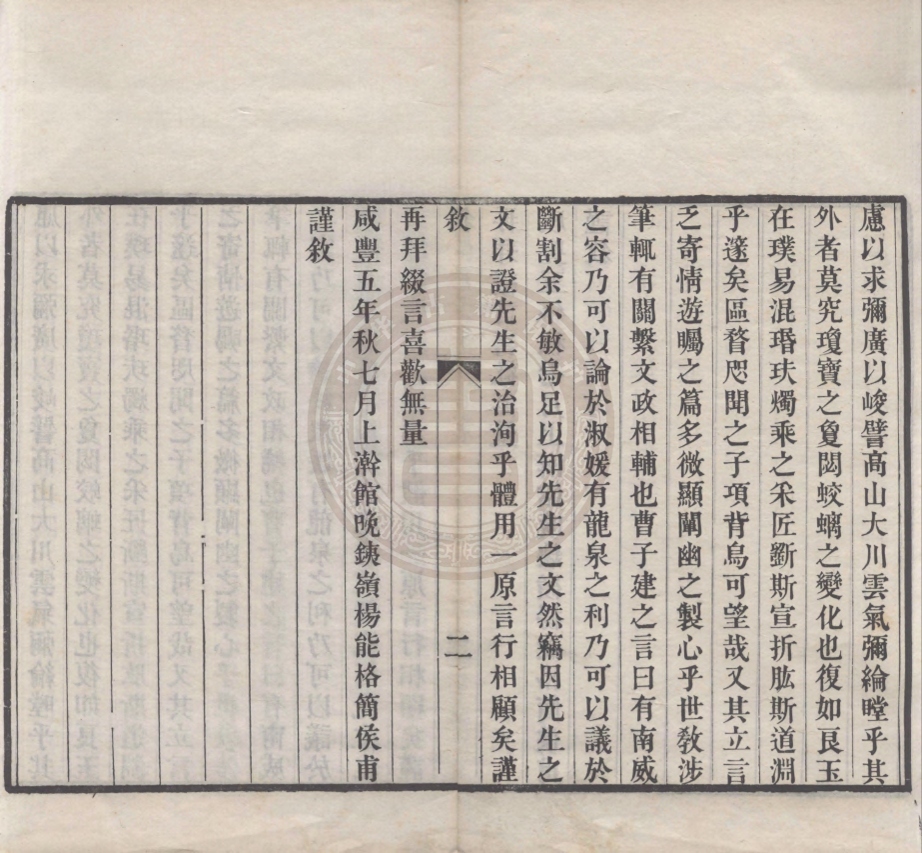 慮以求彌廣以峻譬高山大川雲氣彌綸瞠乎其
外者莫究瓊寶之敻閟蛟螭之變化也復如良玉
在璞易混瑉玞燭乘之釆匠斵斯宣折肱斯道淵
乎邃矣區瞀咫聞之子項背烏可望哉又其立言
乏寄情遊矚之篇多微顯闡幽之製心乎世敎涉
筆輒有關繫文政相輔也曹子建之言曰有南威
之容乃可以論於淑媛有龍泉之利乃可以議於
斷割余不敏烏足以知先生之文然竊因先生之
文以證先生之治洵乎體用一原言行相顧矣謹
敘
二
再拜綴言喜歡無量
咸豐五年秋七月上澣館晚鐵嶺楊能格簡侯甫
謹敘